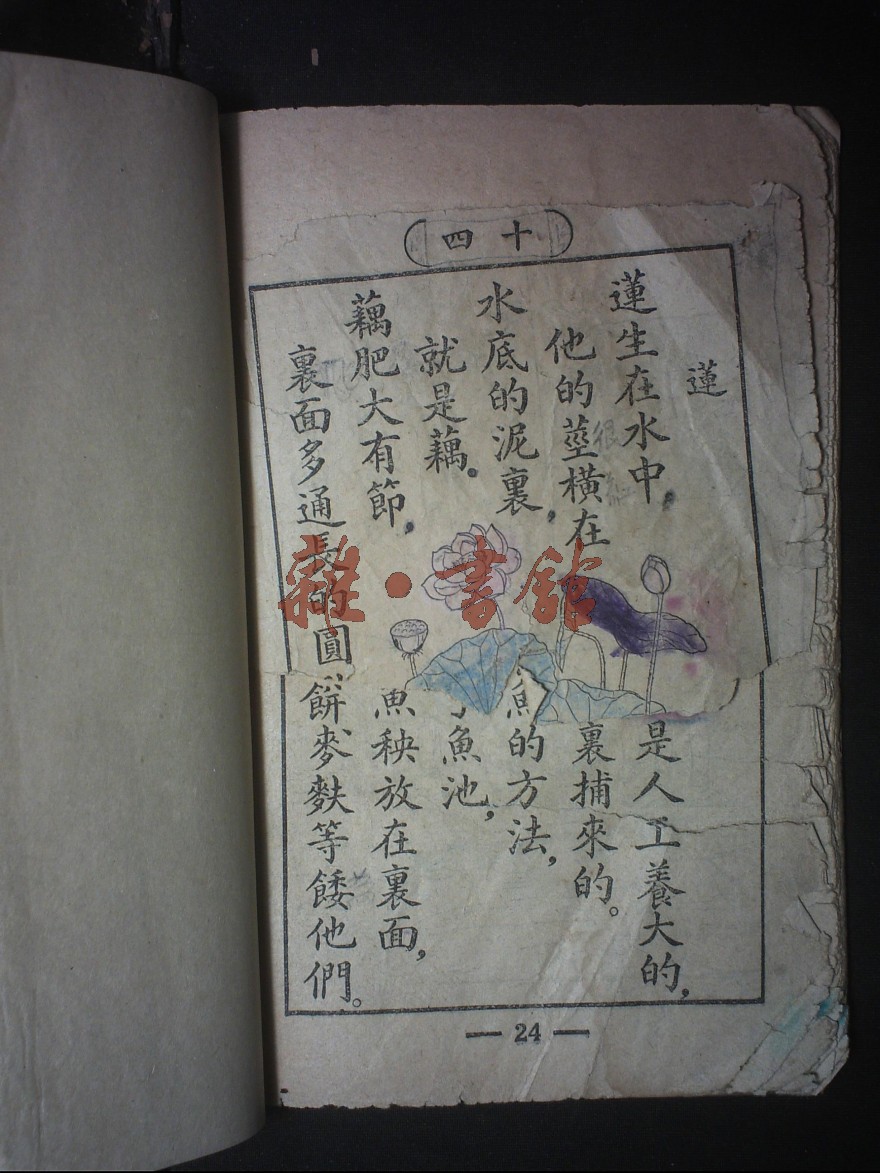 十四
蓮
蓮生在水中，
他的莖橫在
水底的泥裏，
就是藕。
藕肥大有節，
裏面多通長的圓
是人工養大的，
裏捕來的。
的方法，
魚池，
秧放在裏面，
餅麥麩等餧他們。
— 24 —
雜·書館